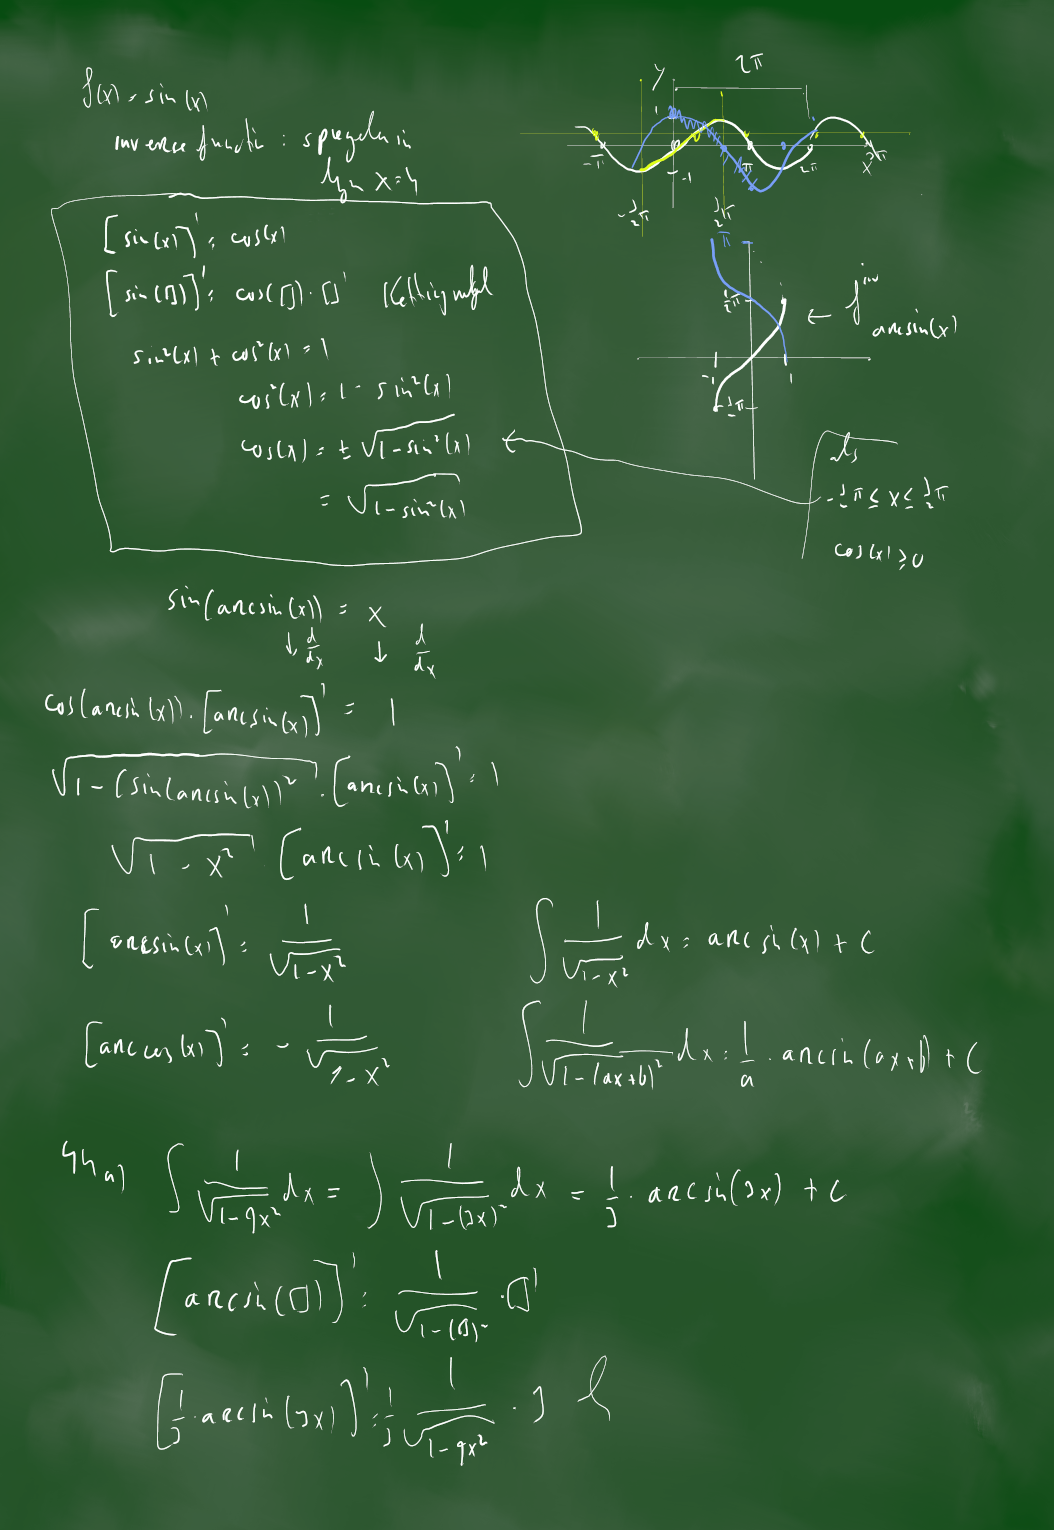 f(x) = sin(x)
inverse functie : spiegelen in
lijn x=y
y
2π
1
-π
0
π
2π
3π
x
-1
-½π
½π
[sin(x)]' = cos(x)
[sin(▯)]' = cos(▯)·▯' Kettingregel
sin²(x) + cos²(x) = 1
cos²(x) = 1 - sin²(x)
cos(x) = ± √(1-sin²(x))
= √(1-sin²(x))
π
½π
-1
1
-½π
← f^inv
arcsin(x)
als
-½π ≤ x ≤ ½π
cos(x) ≥ 0
sin(arcsin(x)) = x
↓ d/dx ↓ d/dx
cos(arcsin(x)) · [arcsin(x)]' = 1
√(1-(sin(arcsin(x))²) · [arcsin(x)]' = 1
√(1-x²) · [arcsin(x)]' = 1
[arcsin(x)]' = 1/√(1-x²)
∫ 1/√(1-x²) dx = arcsin(x) + C
[arccos(x)]' = - 1/√(1-x²)
∫ 1/√(1-(ax+b)²) dx = 1/a · arcsin(ax+b) + C
44 a) ∫ 1/√(1-9x²) dx = ∫ 1/√(1-(3x)²) dx = 1/3 · arcsin(3x) + C
[arcsin(▯)]' = 1/√(1-(▯)²) · ▯'
[1/3 · arcsin(3x)]' = 1/3 · 1/√(1-9x²) · 3